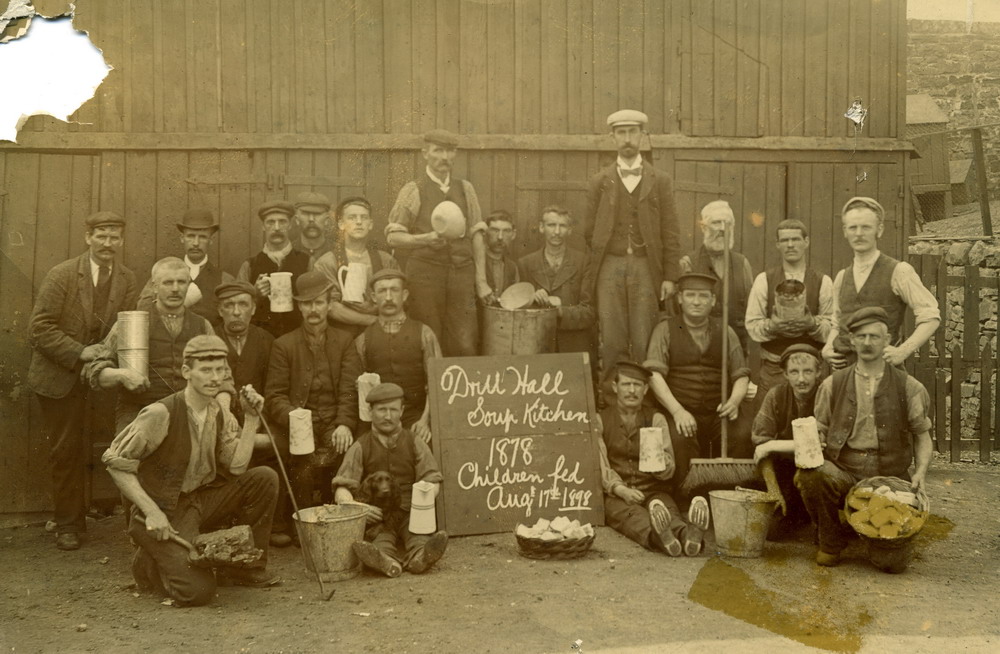 Drill Hall
Soup Kitchen
1878
Children fed
Augst 17th 1898